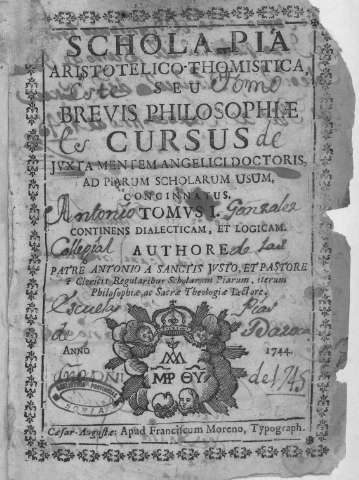 SCHOLA PIA
ARISTOTELICO-THOMISTICA,
SEU
Este Tomo
BREVIS PHILOSOPHIÆ
es CURSUS de
JVXTA MENTEM ANGELICI DOCTORIS,
AD PIARUM SCHOLARUM USUM,
CONCINNATUS.
Antonio TOMVS I. Gonzalez
CONTINENS DIALECTICAM, ET LOGICAM.
Collegial AUTHORE de las
PATRE ANTONIO A SANCTIS JVSTO, ET PASTORE
è Clericis Regularibus Scholarum Piarum, iterum
Philosophiæ, ac Sacræ Theologiæ Lectore.
Escuelas Pias
de
ANNO 1744.
del 745
MP ΘY
Cæsar-Augustæ: Apud Franciscum Moreno, Typograph.